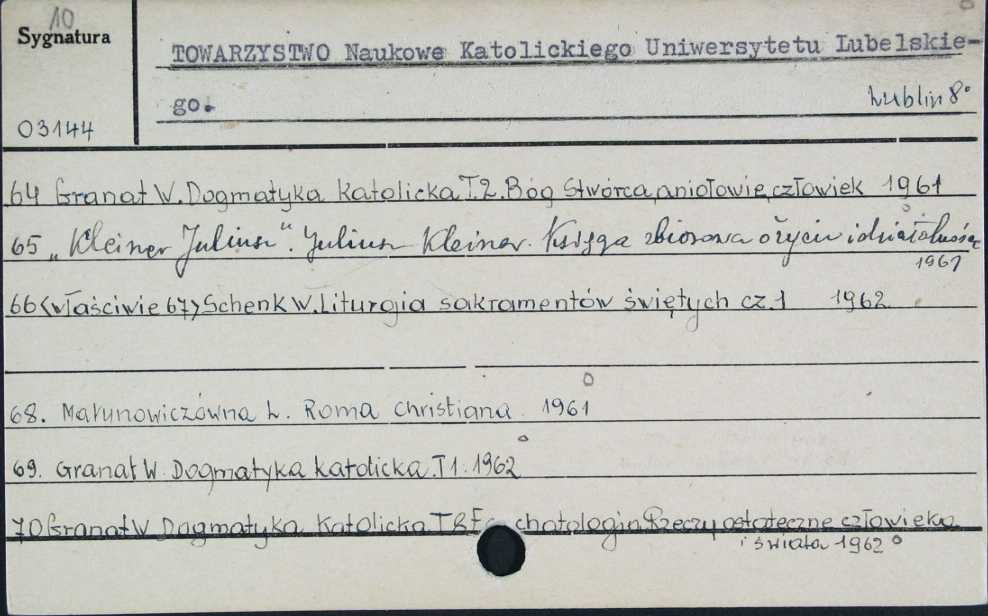 10
Sygnatura
TOWARZYSTWO Naukowe Katolickiego Uniwersytetu Lubelskie-
go.
Lublin 8°
03144
64 Granat W. Dogmatyka Katolicka T.2. Bóg Stwórca, aniołowie, człowiek 1961
65 „Kleiner Juliusz". Juliusz Kleiner. Księga zbiorowa o życiu i działalności
1961
66 <właściwie 67> Schenk W. Liturgia sakramentów świętych cz.1 1962
68. Małunowiczówna L. Roma Christiana. 1961
69. Granat W. Dogmatyka katolicka. T1. 1962
70 Granat W Dogmatyka Katolicka T8 Es chatologia Rzeczy ostateczne człowieka
i świata 1962